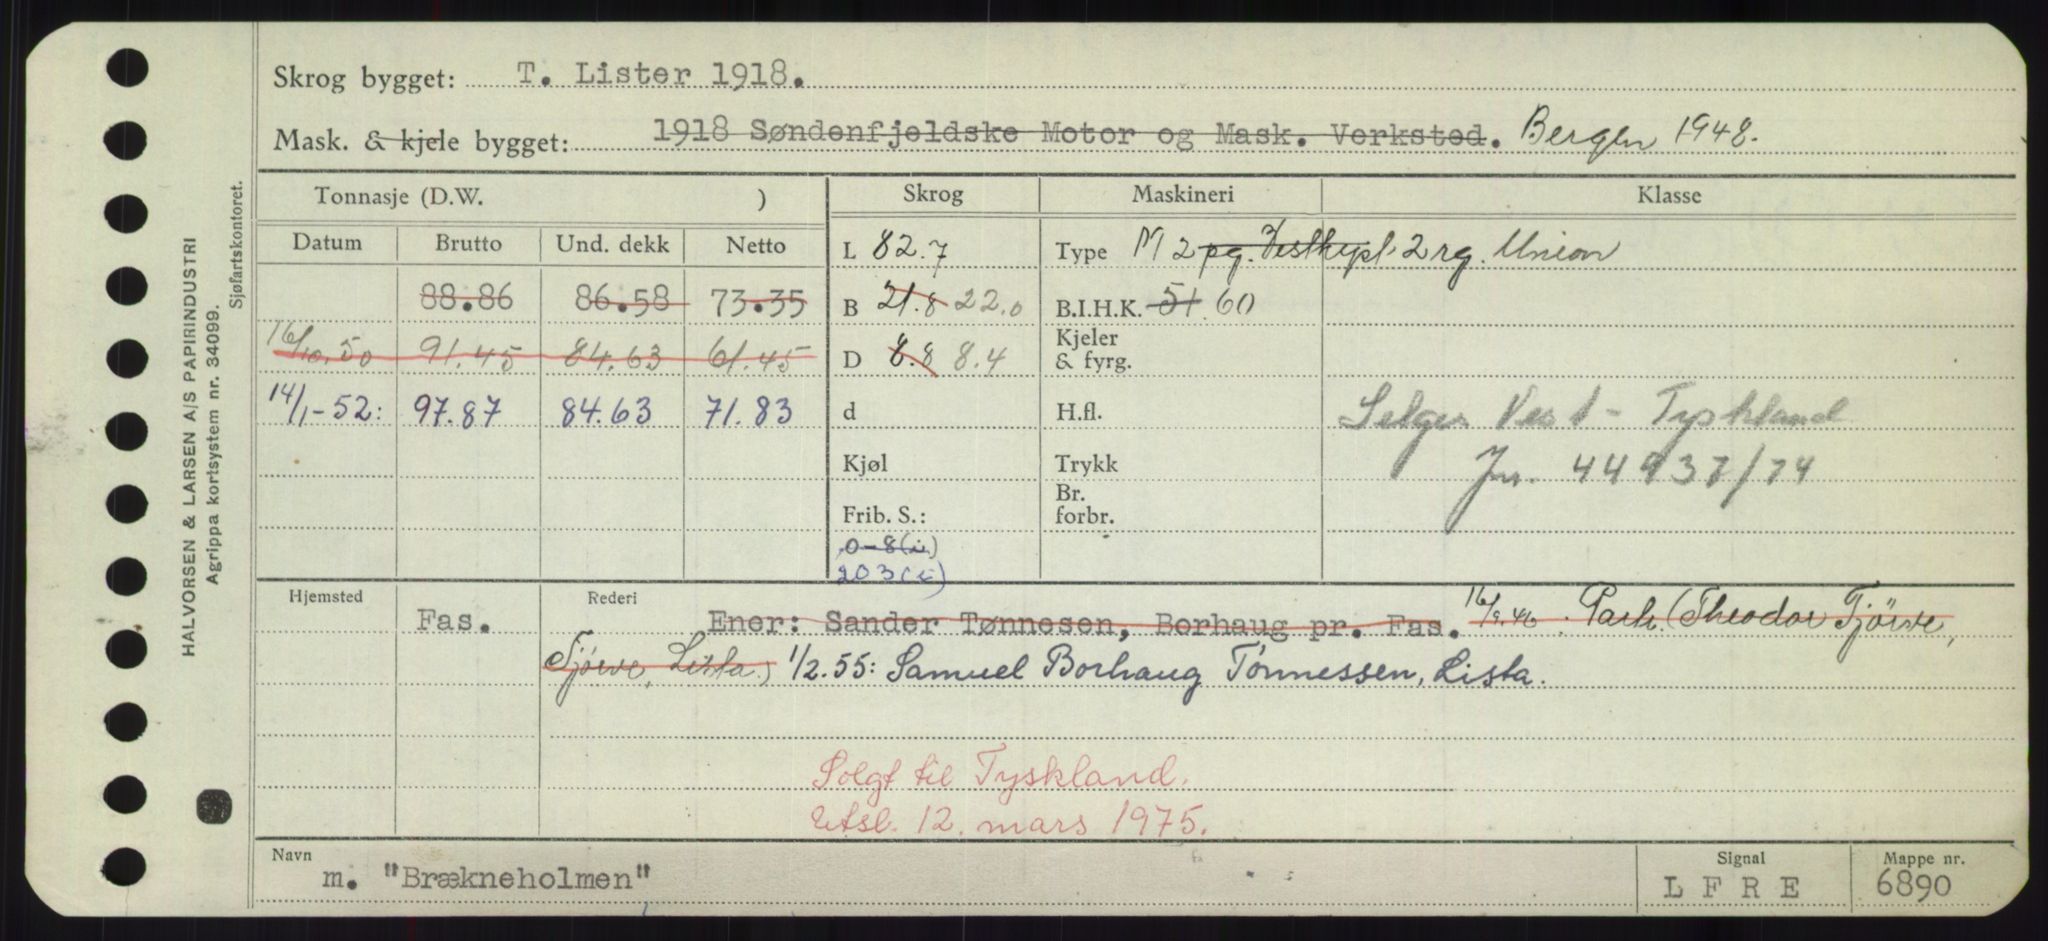 Skrog bygget: T. Lister 1918.
Mask. & kjele bygget: 1918 Søndenfjeldske Motor og Mask. Verksted. Bergen 1948.
Tonnasje (D.W. ) Skrog Maskineri Klasse
Datum Brutto Und. dekk Netto L 82.7 Type M 2 pg. 2 rg. Union
88.86 86.58 73.35 B 21.8 22.0 B.I.H.K. 51 60
16/10.50 91.45 84.63 61.45 D 8.8 8.4 Kjeler & fyrg.
14/1-52: 97.87 84.63 71.83 d H.fl. Selges Vest-Tyskland
Kjøl Trykk Jnr. 44937/74
Frib. S.: Br. forbr.
0-8(i)
203(i)
Hjemsted Rederi
Fas. Ener: Sander Tønnesen, Borhaug pr. Fas. 16/9.46: Part. (Theodor Tjörve,
Tjörve, Lista.) 1/2.55: Samuel Borhaug Tönnessen, Lista.
Solgt til Tyskland.
Utsl. 12. mars 1975.
Navn Signal Mappe nr.
m. "Brækneholmen" L F R E 6890
HALVORSEN & LARSEN A/S PAPIRINDUSTRI
Agrippa kortsystem nr. 34099.
Sjøfartskontoret.